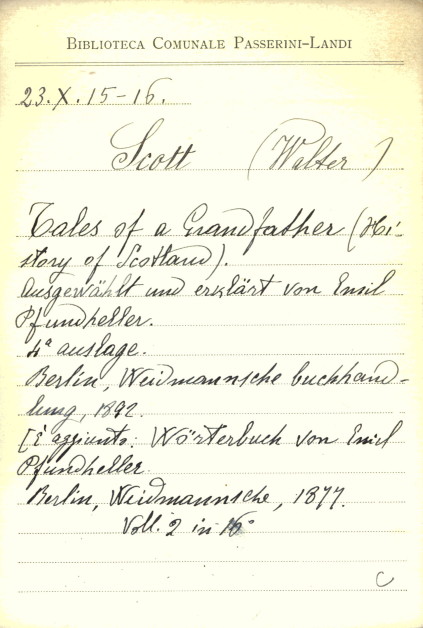 BIBLIOTECA COMUNALE PASSERINI-LANDI
23.X.15-16.
Scott (Walter)
Tales of a Grandfather (Hi-
story of Scotland).
Ausgewählt und erklärt von Emil
Pfundheller.
4ª auslage.
Berlin, Weidmannsche buchhand-
lung, 1892.
[È aggiunto: Wörterbuch von Emil
Pfundheller.
Berlin, Weidmannsche, 1877.
Voll. 2 in 16°
C